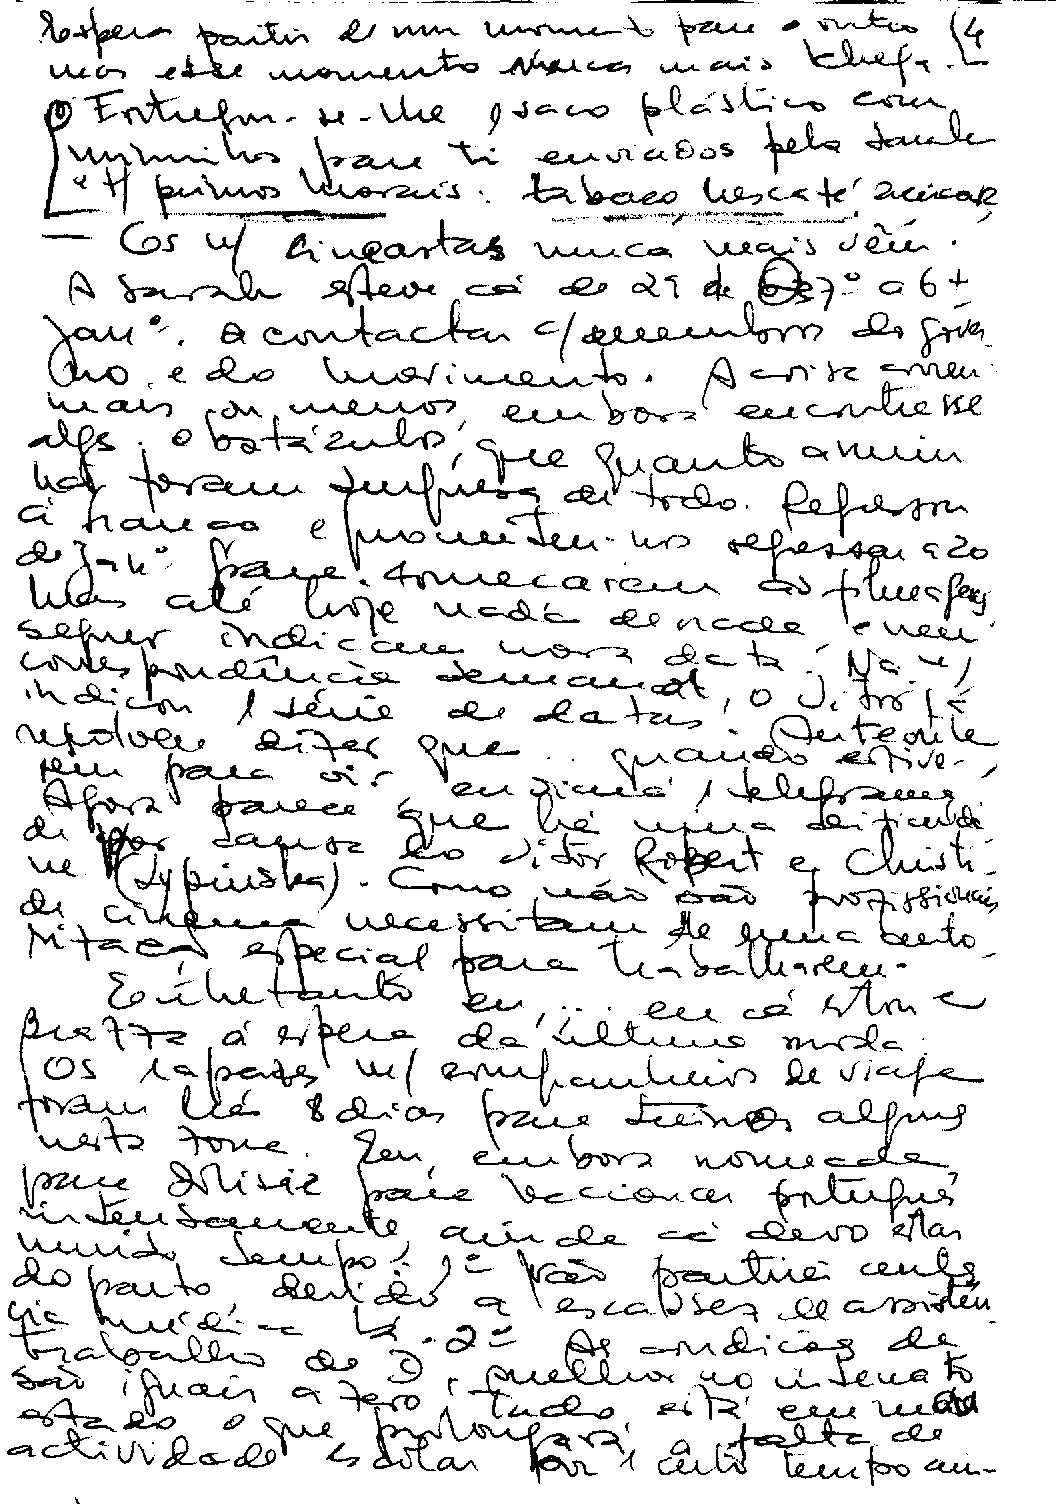 Espera partir de um momento para o outro (4
mas esse momento nunca mais chega.
Entregou-se-lhe 1 saco plástico com
miminhos para ti enviados pela Sarah
e 1 primos Morais: tabaco, nescafé, açúcar,
— Cos n/ cineastas nunca mais vêm.
A Sarah esteve cá de 29 de Dezº a 6
Janº. a contactar c/ membros do gover
no e do movimento. A coisa correu
mais ou menos, embora encontrasse
algs. obstáculos, que quanto a mim
não foram surpresa de todo. Regressou
à França e prometeu-nos regressar a 20
de Janº para começarem as filmagens
Mas até hoje nada de nada e nem
sequer indicam nova data. Na
correspondência semanal, o Vítor já
indicou 1 série de datas. Anteontem
resolveu dizer que quando estive-
rem para vir, enviará 1 telegrama.
Agora parece que há uma dificulda
de por causa do Vítor Robert e Christi
ne (Lypinska). Como não são profissionais
de cinema necessitam de uma auto
ritação especial para trabalharem.
Entretanto eu, ... eu cá estou
à espera da última moda.
Os rapazes m/ companheiros de viagem
foram há 8 dias para alguns
nesta zona. Eu, embora nomeada
para para leccionar português
intensamente, ainda cá devo estar
muito tempo: 1º Não partirei antes
do parto devido a escassez de assistên
cia médica lá. 2º As condições de
trabalho de D, melhor no internato
são iguais a zero, tudo está em mau
estado o que prolongará a falta de
actividade escolar por 1 certo tempo ain-